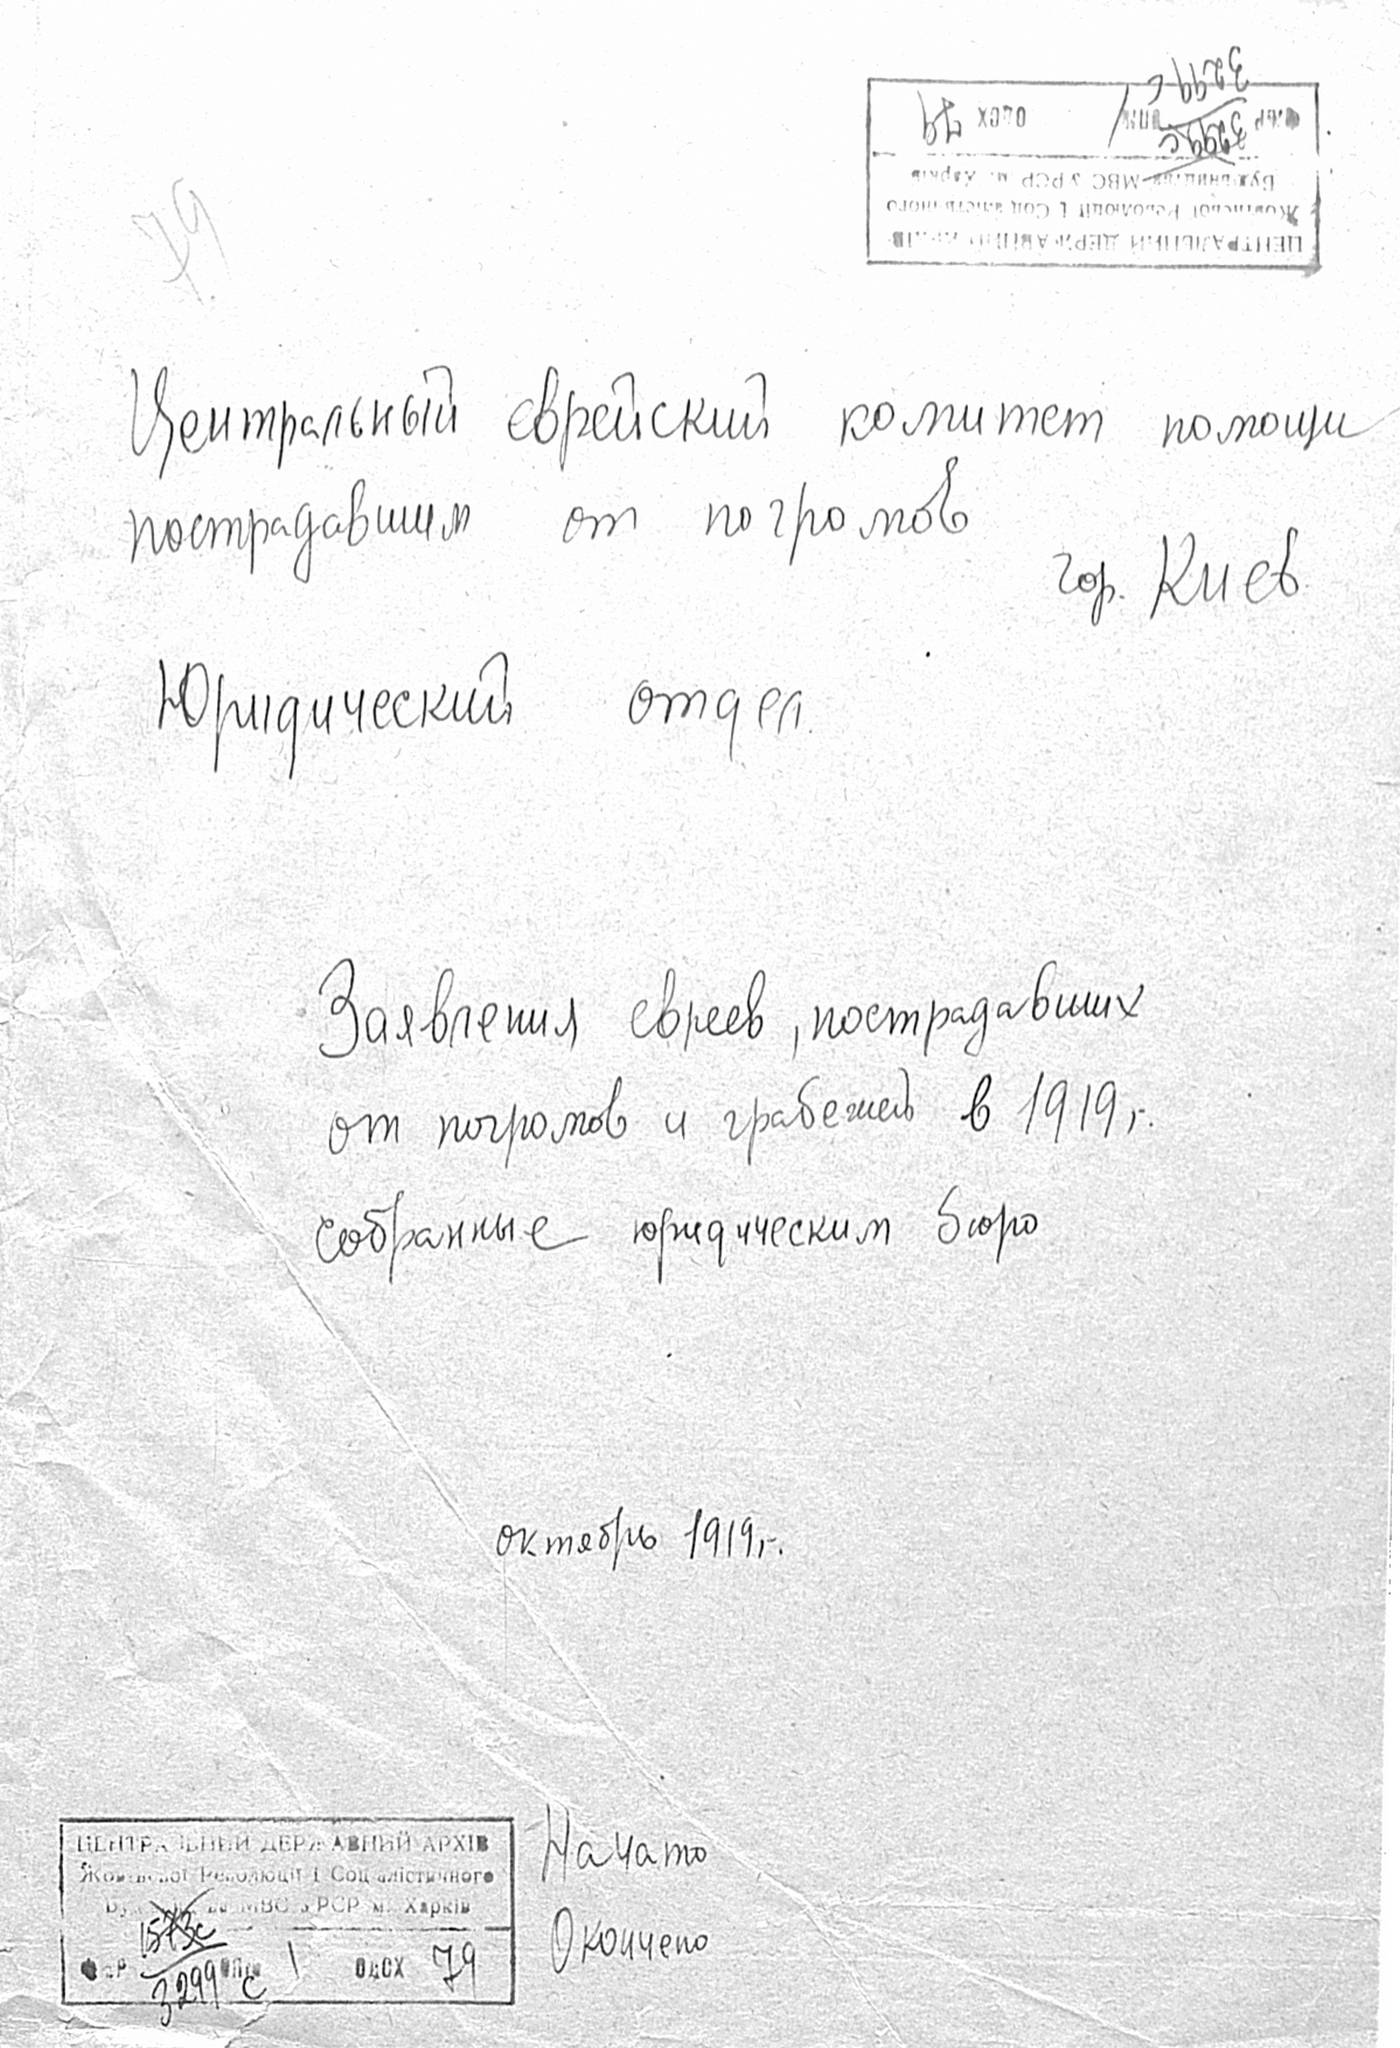 3299 с
ЦЕНТРАЛЬНИЙ ДЕРЖАВНИЙ АРХІВ
Жовтневої Революції і Соціалістичного
Будівництва МВС УРСР м. Харків
3299с оп. 1 ОдСХ 79
79
Центральный еврейский комитет помощи
пострадавшим от погромов
гор. Киев.
Юридический отдел.
Заявления евреев, пострадавших
от погромов и грабежей в 1919 г.
собранные юридическим бюро
октябрь 1919 г.
ЦЕНТРАЛЬНИЙ ДЕРЖАВНИЙ АРХІВ
Жовтневої Революції і Соціалістичного
Будівництва МВС УРСР м. Харків
1573с
3299 с 1 ОдСХ 79
Начато
Окончено